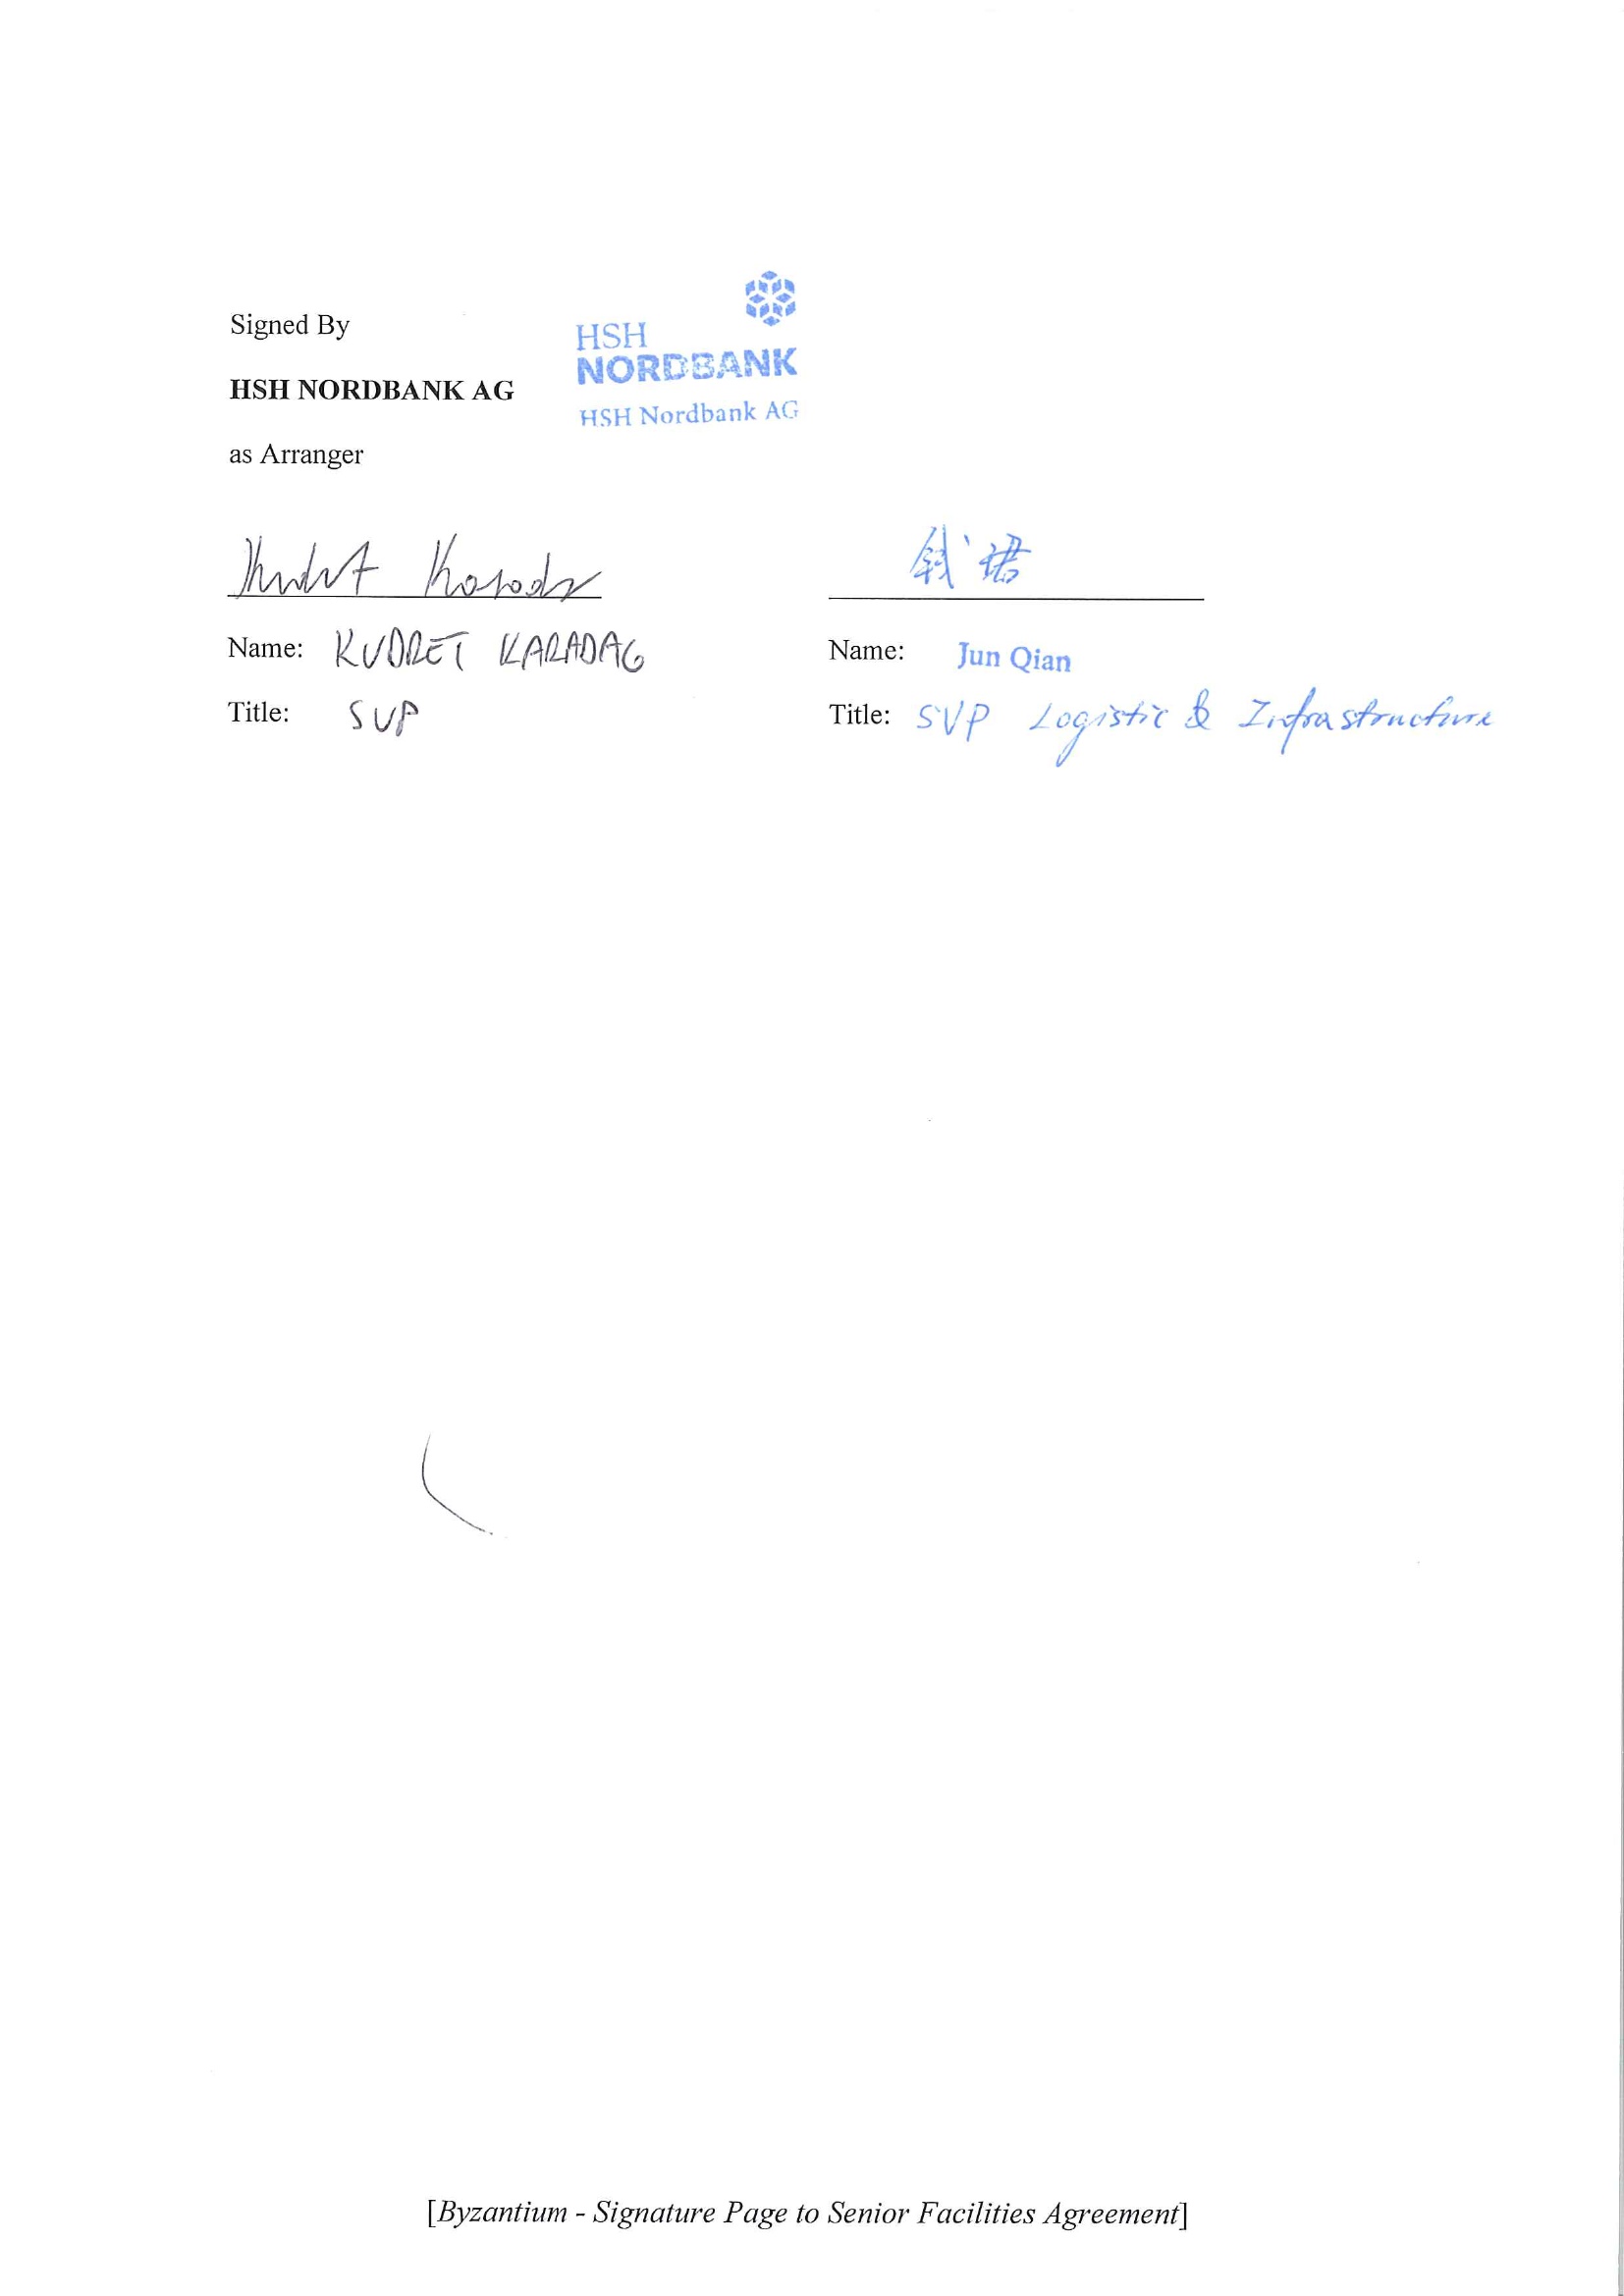 Signed By
HSH NORDBANK AG
as Arranger
HSH
NORDBANK
HSH Nordbank AG
Kudret Karadag
钱珺
Name: KUDRET KARADAG
Title: SVP
Name: Jun Qian
Title: SVP Logistic & Infrastructure
[Byzantium - Signature Page to Senior Facilities Agreement]